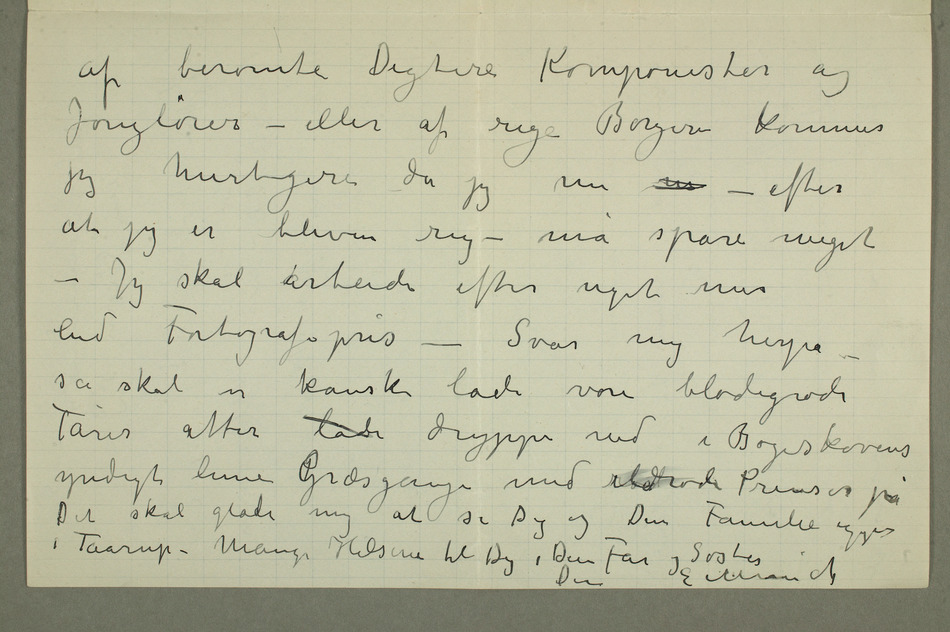 af berømte Digtere Komponister og
Jonglører – eller af rige Borgere kommer
jeg hurtigere da jeg nu – efter
at jeg er bleven rig – må spare meget
– Jeg skal arbeide efter noget mer
end Fortografipris — Svar mig herpå –
så skal vi kanske lade vore blodigrøde
Tårer atter lade dryppe ned i Bøgeskovens
yndigt lune Græsgange med Prinser på
Det skal glæde mig at se Dig og Din Familie igjen
i Taarup – Mange Hilsener til Dig, Din Far og Søster
Din E Munch